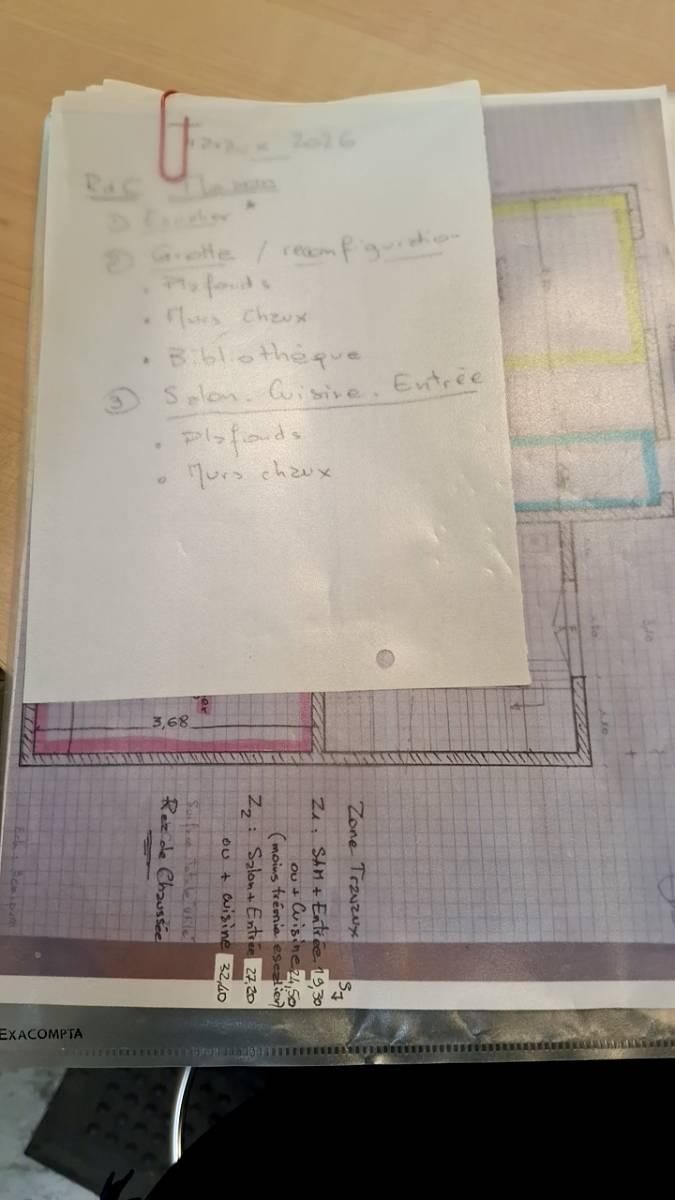 Travaux 2026
RdC Maison
1) Escalier *
2) Grotte / reconfiguration
• Plafonds
• Murs chaux
• Bibliothèque
3) Salon. Cuisine. Entrée
• Plafonds
• Murs chaux
3,68
Zone Travaux
SJ
Z1: SAM + Entrée 19,30
ou + Cuisine 24,50
(moins trémie escalier)
Z2: Salon + Entrée 27,20
ou + cuisine 32,40
Surface totale utile
Rez de Chaussée
EXACOMPTA